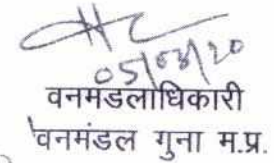 05/03/20
वनमंडलाधिकारी
वनमंडल गुना म.प्र.